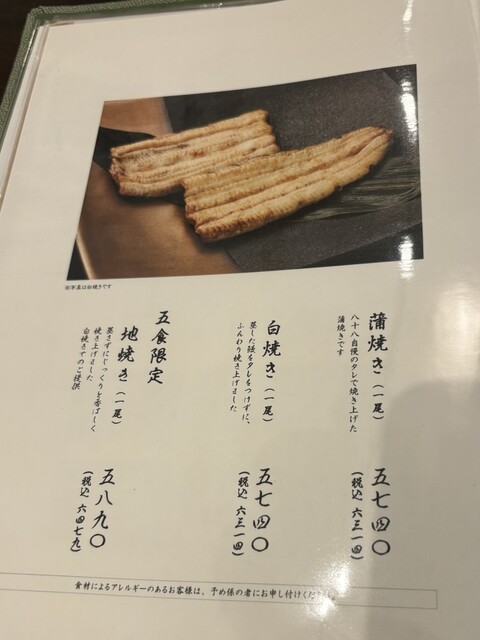 ※写真は白焼きです
蒲焼き（一尾）
八十八自慢のタレで焼き上げた
蒲焼きです
五七四〇
（税込 六三一四）
白焼き（一尾）
蒸した鰻をタレをつけずに、
ふんわり焼き上げました
五七四〇
（税込 六三一四）
五食限定
地焼き（一尾）
蒸さずにじっくりと香ばしく
焼き上げました
白焼きでのご提供
五八九〇
（税込 六四七九）
食材によるアレルギーのあるお客様は、予め係の者にお申し付けください。